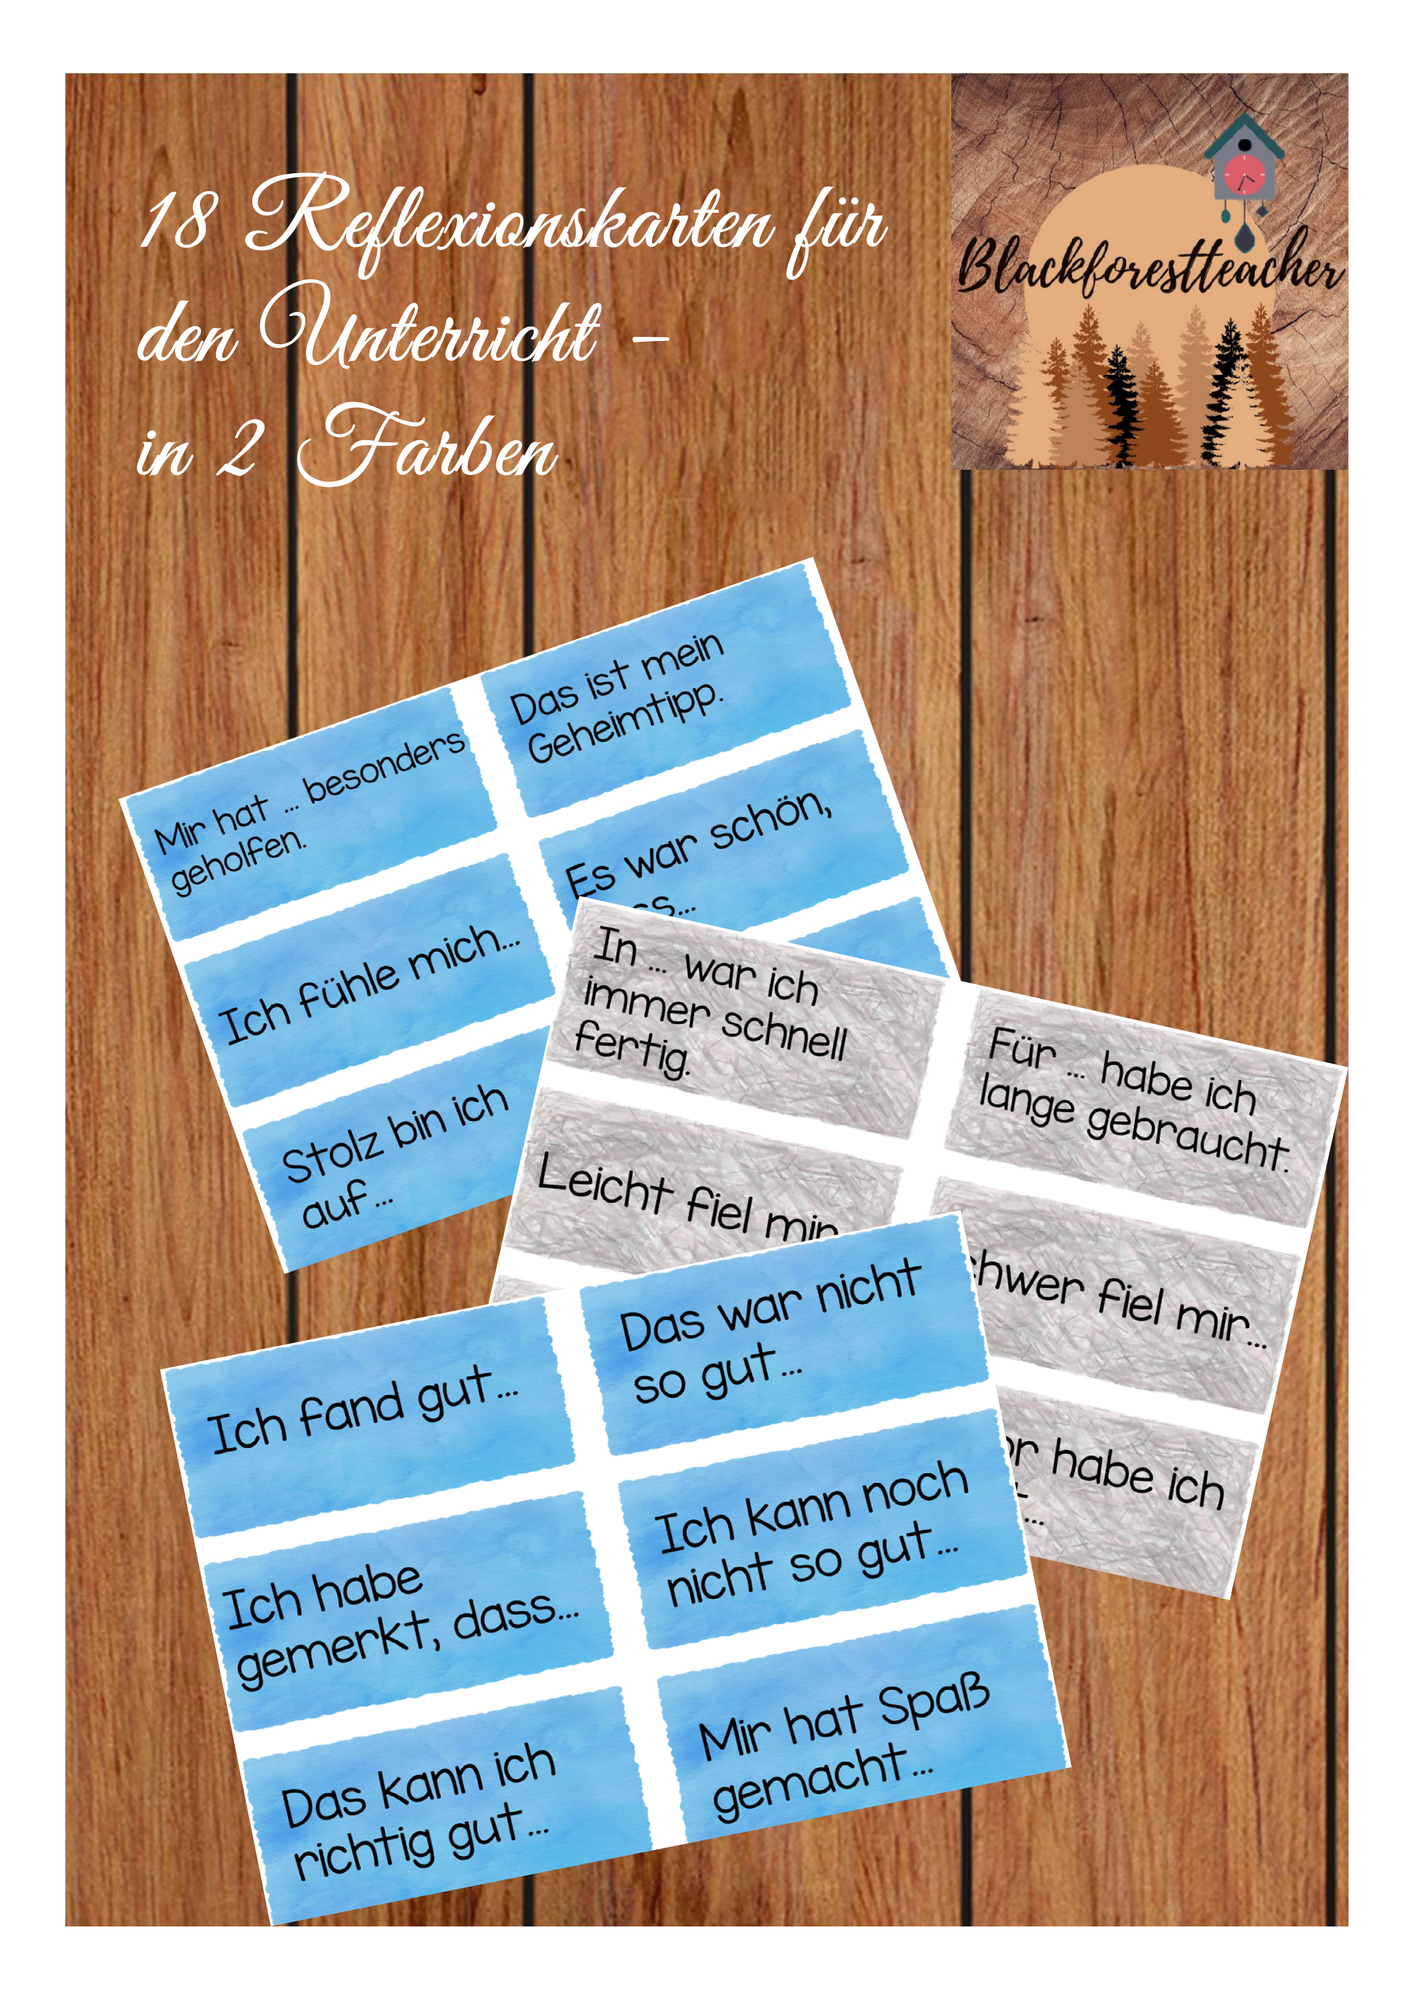 18 Reflexionskarten für
den Unterricht –
in 2 Farben
Blackforestteacher
Mir hat ... besonders
geholfen.
Das ist mein
Geheimtipp.
Ich fühle mich...
Es war schön,
Stolz bin ich
auf ...
In ... war ich
immer schnell
fertig.
Für ... habe ich
lange gebraucht.
Leicht fiel mir
fiel mir...
habe ich
Ich fand gut...
Das war nicht
so gut...
Ich habe
gemerkt, dass...
Ich kann noch
nicht so gut...
Das kann ich
richtig gut...
Mir hat Spaß
gemacht...